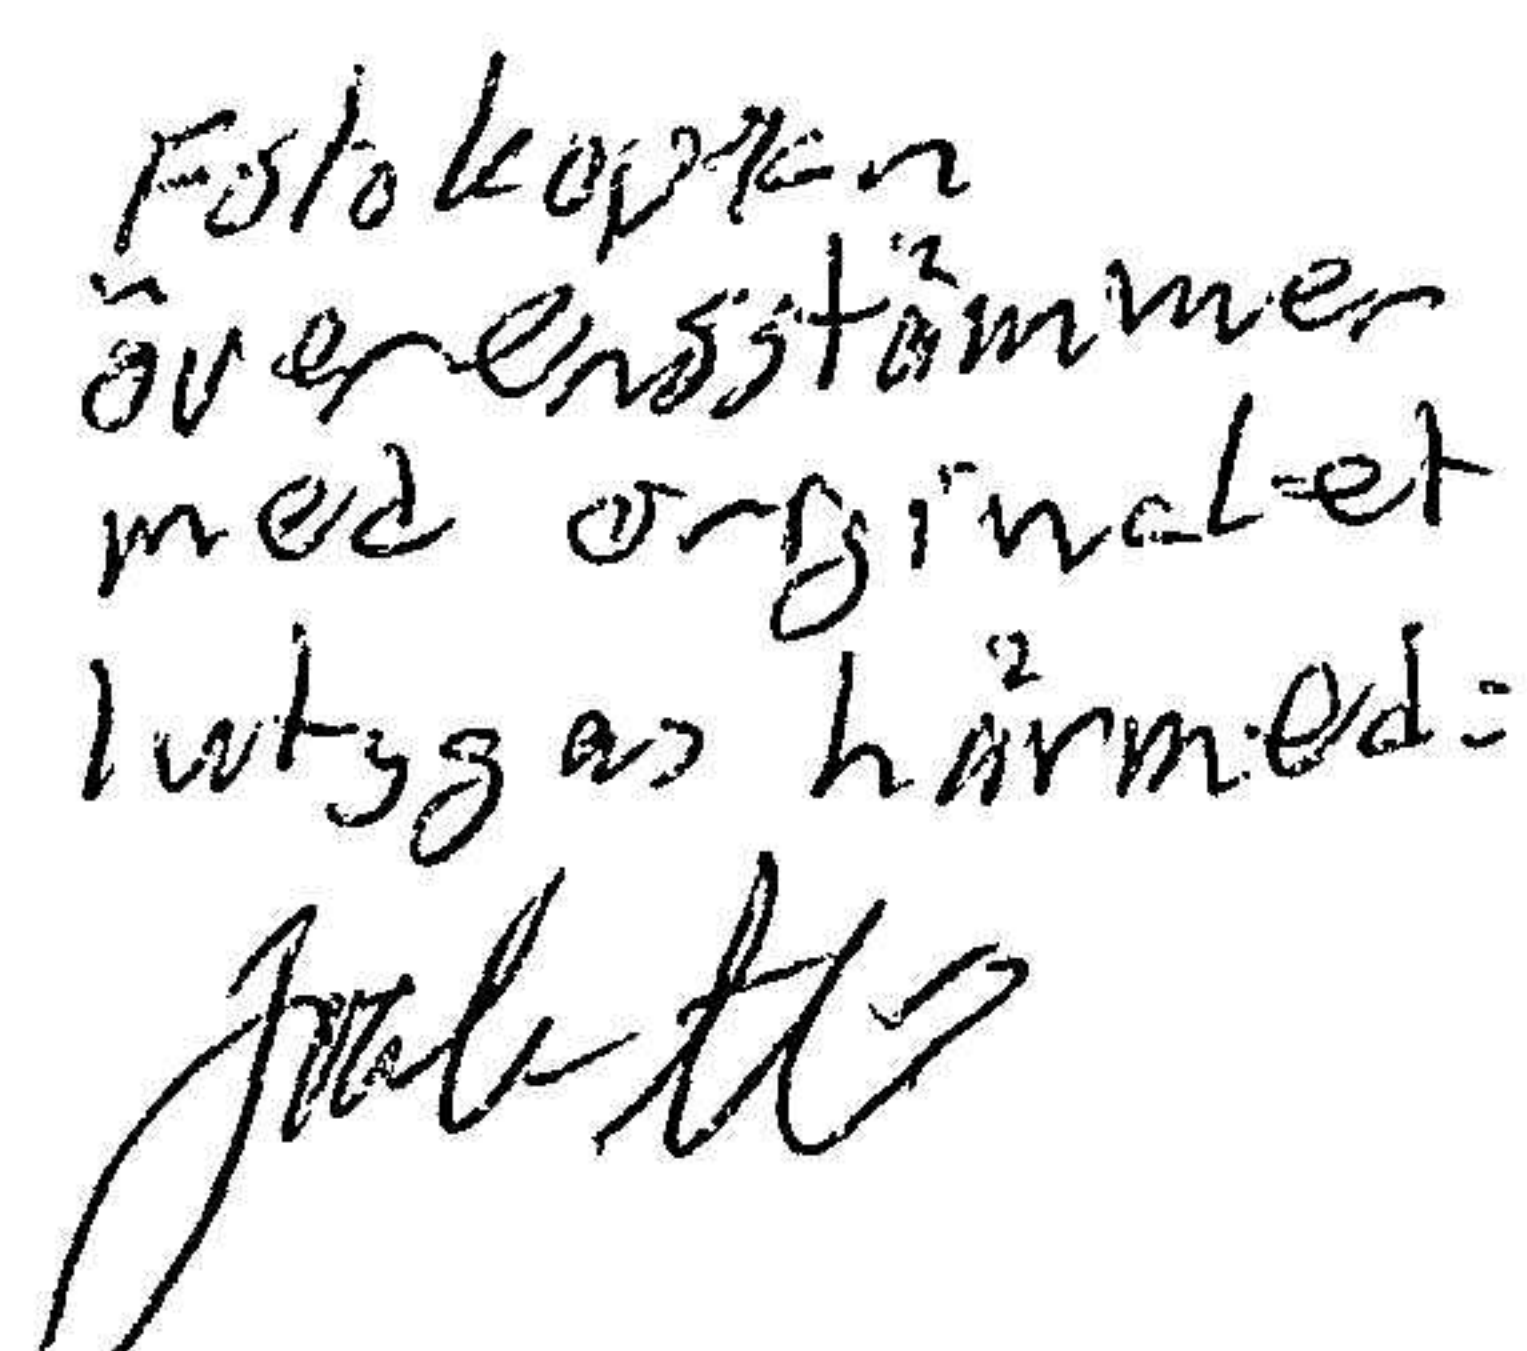 Fotokopian
överensstämmer
med orginalet
intygas härmed: